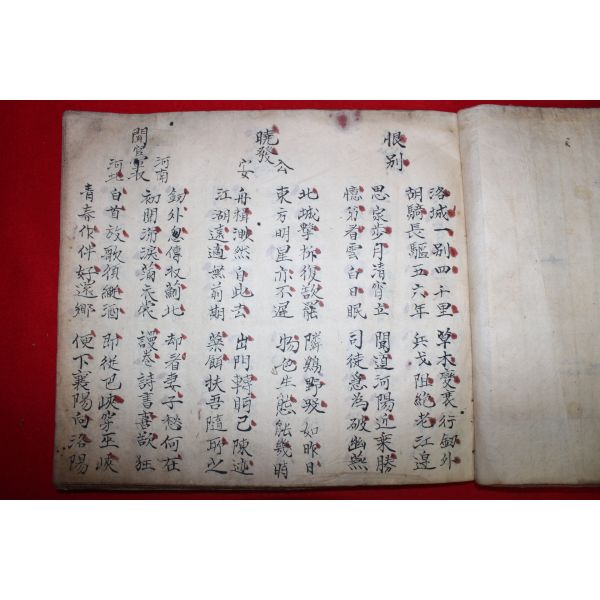 恨別
洛城一別四千里 草木變衰行劍外
胡騎長驅五六年 兵戈阻絶老江邊
思家步月清宵立 聞道河陽近乘勝
憶弟看雲白日眠 司徒急為破幽燕
曉發公安
北城擊柝復欲罷 隣鷄野哭如昨日
東方明星亦不遲 物色生態能幾時
舟楫渺然自此去 出門轉眄已陳迹
江湖遠適無前期 藥餌扶吾隨所之
聞官軍收河南河北
劍外忽傳收薊北 却看妻子愁何在
初聞涕淚滿衣裳 謾卷詩書喜欲狂
白首放歌須縱酒 即從巴峽穿巫峽
青春作伴好還鄉 便下襄陽向洛陽